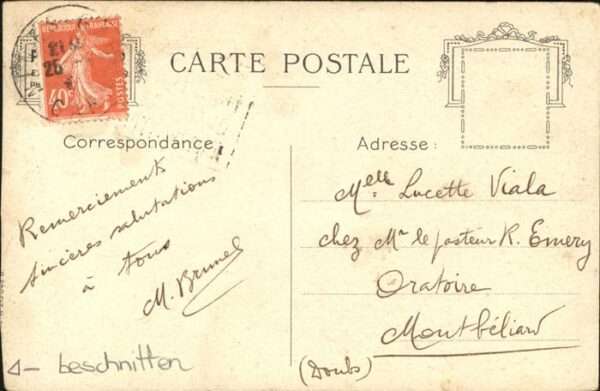 REPUBLIQUE FRANÇAISE
POSTES
40c
CARTE POSTALE
Correspondance
Adresse :
Remerciements
sincères salutations
à tous
M. Brunel
Melle Lucette Viala
chez Mr le pasteur R. Emery
Oratoire
Montbéliard
(Doubs)
beschnitten